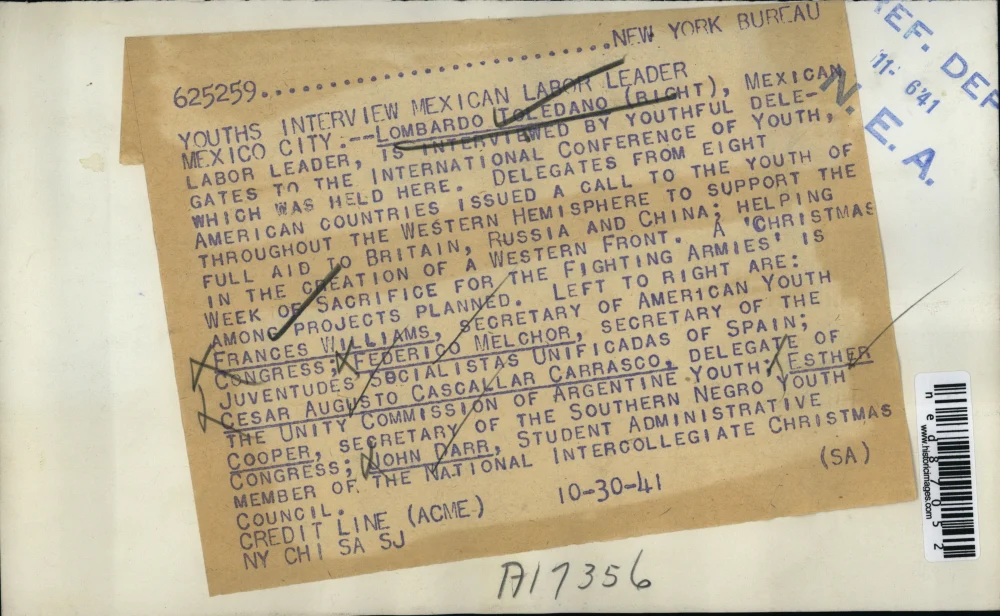 625259........................................NEW YORK BUREAU
YOUTHS INTERVIEW MEXICAN LABOR LEADER
MEXICO CITY:--LOMBARDO TOLEDANO (RIGHT), MEXICAN
LABOR LEADER, IS INTERVIEWED BY YOUTHFUL DELE-
GATES TO THE INTERNATIONAL CONFERENCE OF YOUTH,
WHICH WAS HELD HERE. DELEGATES FROM EIGHT
AMERICAN COUNTRIES ISSUED A CALL TO THE YOUTH OF
THROUGHOUT THE WESTERN HEMISPHERE TO SUPPORT THE
FULL AID TO BRITAIN, RUSSIA AND CHINA; HELPING
IN THE CREATION OF A WESTERN FRONT. A 'CHRISTMAS
WEEK OF SACRIFICE FOR THE FIGHTING ARMIES' IS
AMONG PROJECTS PLANNED. LEFT TO RIGHT ARE:
FRANCES WILLIAMS, SECRETARY OF AMERICAN YOUTH
CONGRESS; FEDERICO MELCHOR, SECRETARY OF THE
JUVENTUDES SOCIALISTAS UNIFICADAS OF SPAIN;
CESAR AUGUSTO CASCALLAR CARRASCO, DELEGATE OF
THE UNITY COMMISSION OF ARGENTINE YOUTH; ESTHER
COOPER, SECRETARY OF THE SOUTHERN NEGRO YOUTH
CONGRESS; JOHN DARR, STUDENT ADMINISTRATIVE
MEMBER OF THE NATIONAL INTERCOLLEGIATE CHRISTMAS
COUNCIL.
CREDIT LINE (ACME) 10-30-41 (SA)
NY CHI SA SJ
A17356
REF. DEP
11- 6'41
N. E. A.
www.historicimages.com
ned87052